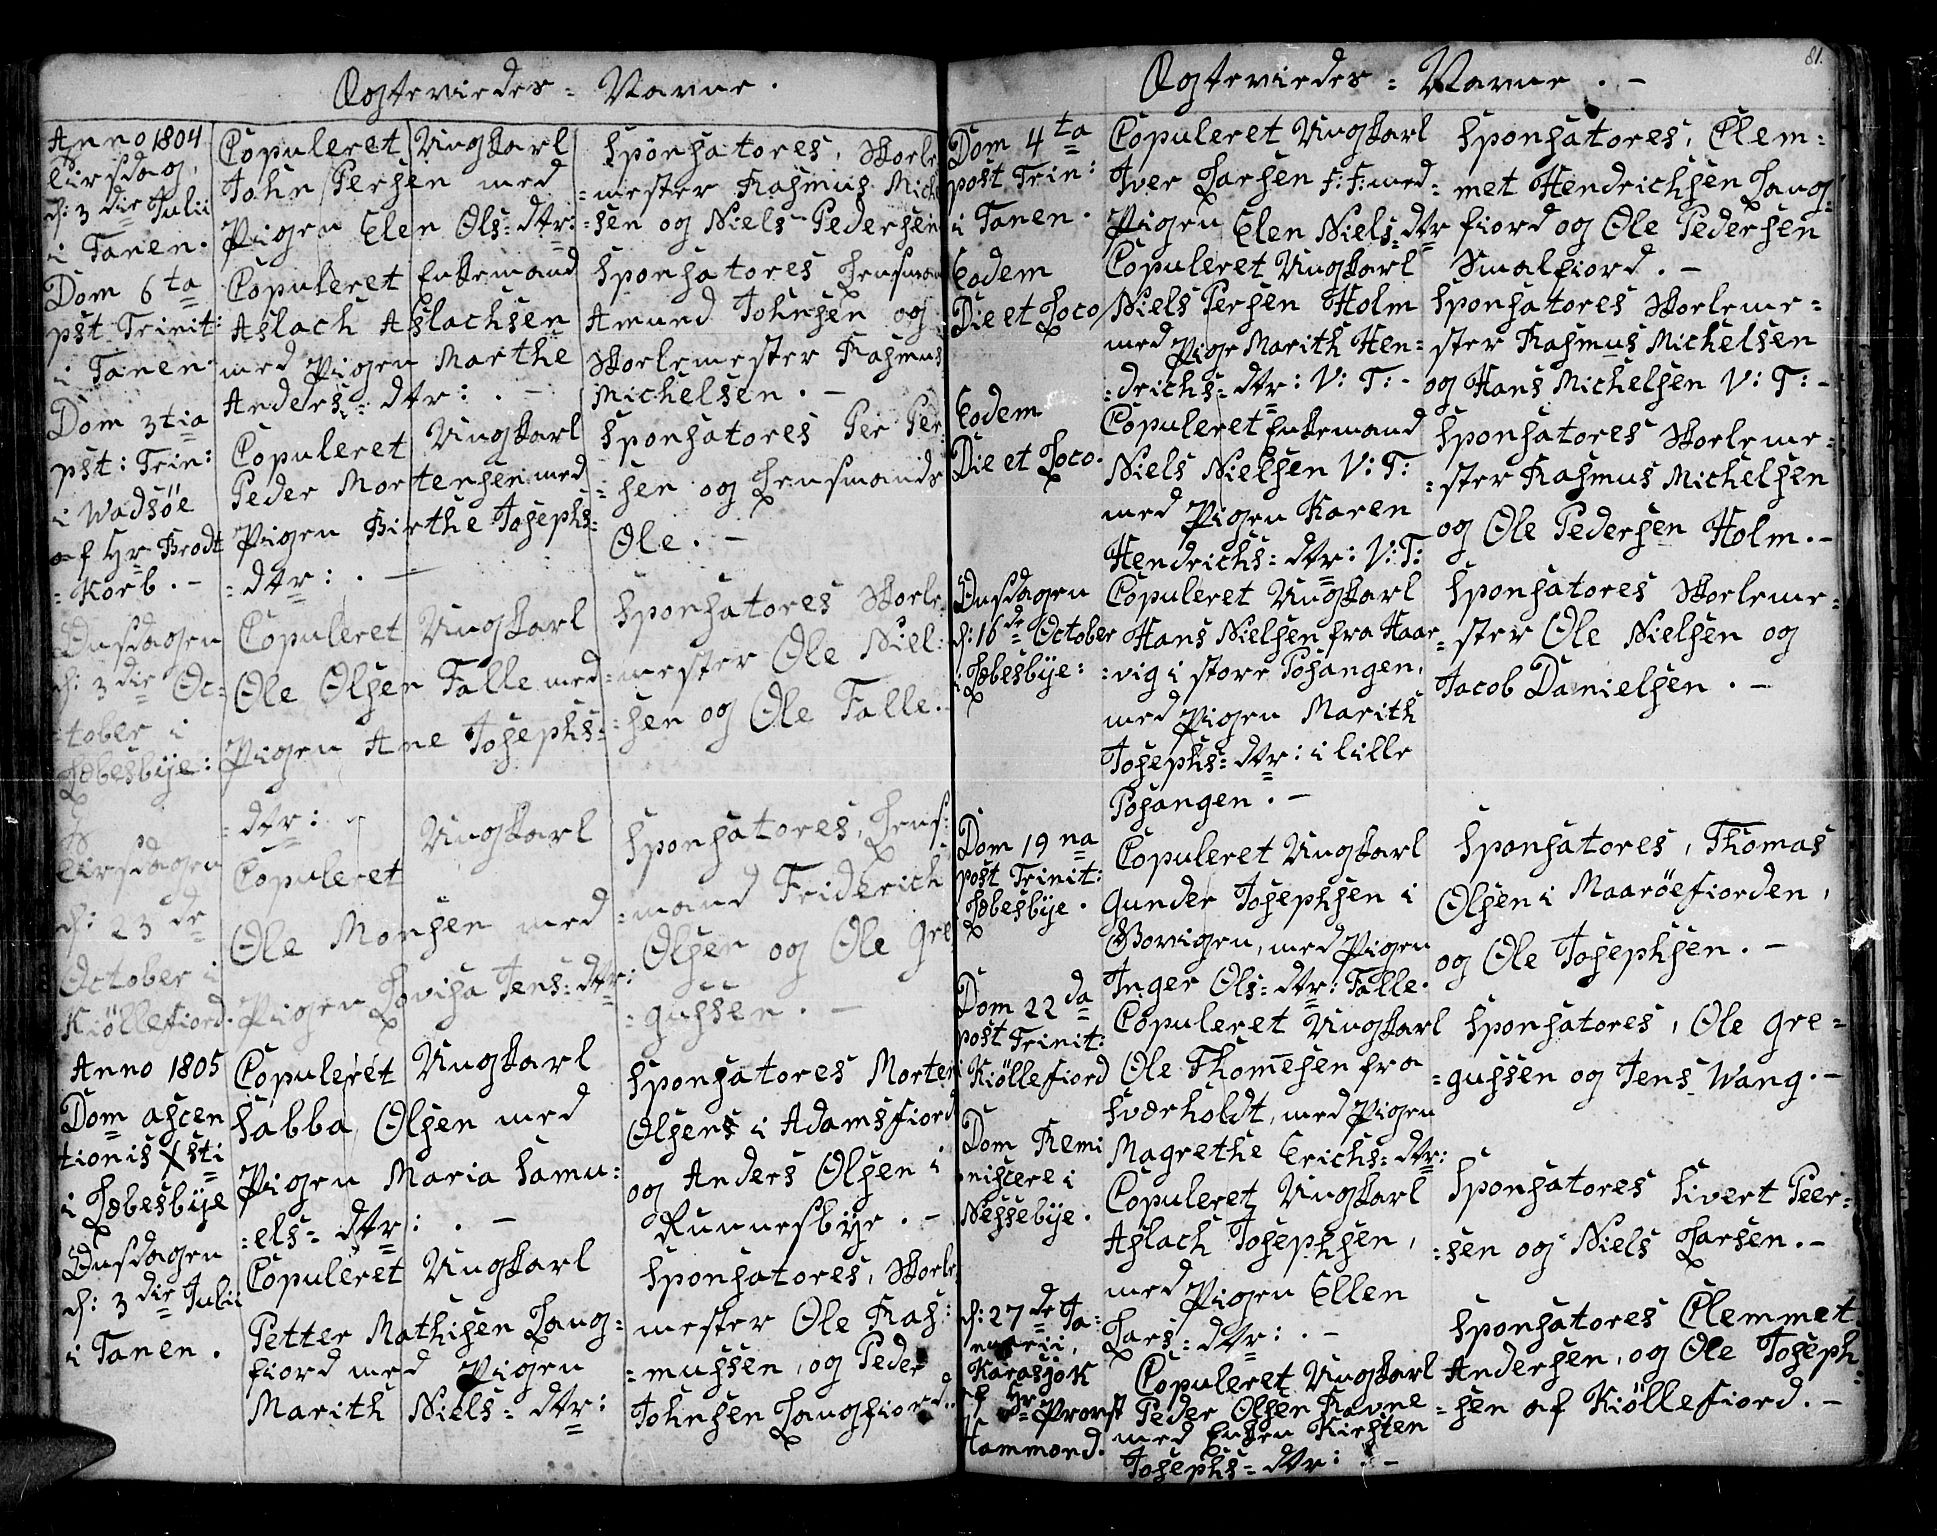 Ægteviedes = Navne .
Anno 1804
Tirsdag,
d: 3die Julii
i Tanen.
Copuleret Ungkarl
John Persen med
Pigen Elen Ols=dtr:
Sponsatores, Skole
=mester Rasmus Mich
=sen og Niels Pedersen
Dom 6ta
pst Trinit:
i Tanen.
Copuleret Enkemand
Aslach Aslachsen
med Pigen Marthe
Anders=dtr: . -
Sponsatores Lensman
Amund Johnsen og
Skolemester Rasmus
Michelsen . -
Dom 3tia
pst: Trin:
i Wadsöe
af Hr Brodt
=korb . -
Copuleret Ungkarl
Peder Mortensen med
Pigen Birthe Josephs=
=dtr: . -
Sponsatores Per Per
=sen og Lensmands
Ole . -
Onsdagen
d: 3die Oc=
tober i
Lebesbye:
Copuleret Ungkarl
Ole Olsen Falle med
Pigen Ane Josephs=
=dtr:
Sponsatores Skole
=mester Ole Niel=
=sen og Ole Falle.
Tirsdagen
d: 23de
October i
Kiöllefiord.
Copuleret Ungkarl
Ole Monsen med
Pigen Lovisa Jens=dtr:
Sponsatores, Lens=
=mand Friderich
Olsen og Ole Gre
=gussen . -
Anno 1805
Dom ascen
tionis Xsti
i Lebesbye
Copuleret Ungkarl
Sabba Olsen med
Pigen Maria Samu=
=els=dtr: . -
Sponsatores Morten
Olsens i Adamsfiord
og Anders Olsen i
Runnesbye . -
Onsdagen
d: 3die Julii
i Tanen .
Copuleret Ungkarl
Petter Mathisen Lang=
fiord med Pigen
Marith Niels=dtr:
Sponsatores, Skole
mester Ole Ras=
=mussen, og Peder
Johnsen Langfiord.
81.
Ægteviedes = Navne . -
Dom 4ta
post Trin:
i Tanen .
Copuleret Ungkarl
Iver Larsen F: F: med
Pigen Elen Niels=dtr
Sponsatores, Clem=
=met Hendrichsen Lang
fiord og Ole Pedersen
Smalfiord . -
Eodem
Die et Loco
Copuleret Ungkarl
Niels Persen Holm
med Pige Marith Hen=
=drichs=dtr: V: T: -
Sponsatores Skoleme=
ster Rasmus Michelsen
og Hans Michelsen V: T: -
Eodem
Die et Loco.
Copuleret Enkemand
Niels Nielsen V: T:
med Pigen Karen
Hendrichs=dtr: V: T:
Sponsatores Skoleme=
=ster Rasmus Michelsen
og Ole Pedersen Holm . -
Onsdagen
d: 16de October
i Lebesbye:
Copuleret Ungkarl
Hans Nielsen fra Haar
=vig i store Posangen,
med Pigen Marith
Josephs=dtr: i lille
Posangen . -
Sponsatores Skoleme=
=ster Ole Nielsen og
Jacob Danielsen . -
Dom 19na
post Trinit:
Lebesbye .
Copuleret Ungkarl
Gunder Josephsen i
Govigen, med Pigen
Inger Ols=dtr: Falle.
Sponsatores, Thomas
Olsen i Maaröefiorden,
og Ole Josephsen . -
Dom 22da
post Trinit:
Kiöllefiord
Copuleret Ungkarl
Ole Thomesen fra
Sværholdt, med Pigen
Magrethe Erichs=dtr:
Sponsatores, Ole Gre=
=gussen og Jens Wang . -
Dom Remi
niscere i
Nessebye .
Copuleret Ungkarl
Aslach Josephsen,
med Pigen Ellen
Lars=dtr: . -
Sponsatores Sivert Peer=
=sen og Niels Larsen . -
d: 27de Ja=
nuarii,
Karasjok
af Hr Provst
Hammond.
Copuleret Ungkarl
Peder Olsen Ravne
med Enken Kirsten
Josephs=dtr: . -
Sponsatores Clemmet
Andersen, og Ole Joseph
=sen af Kiöllefiord . -